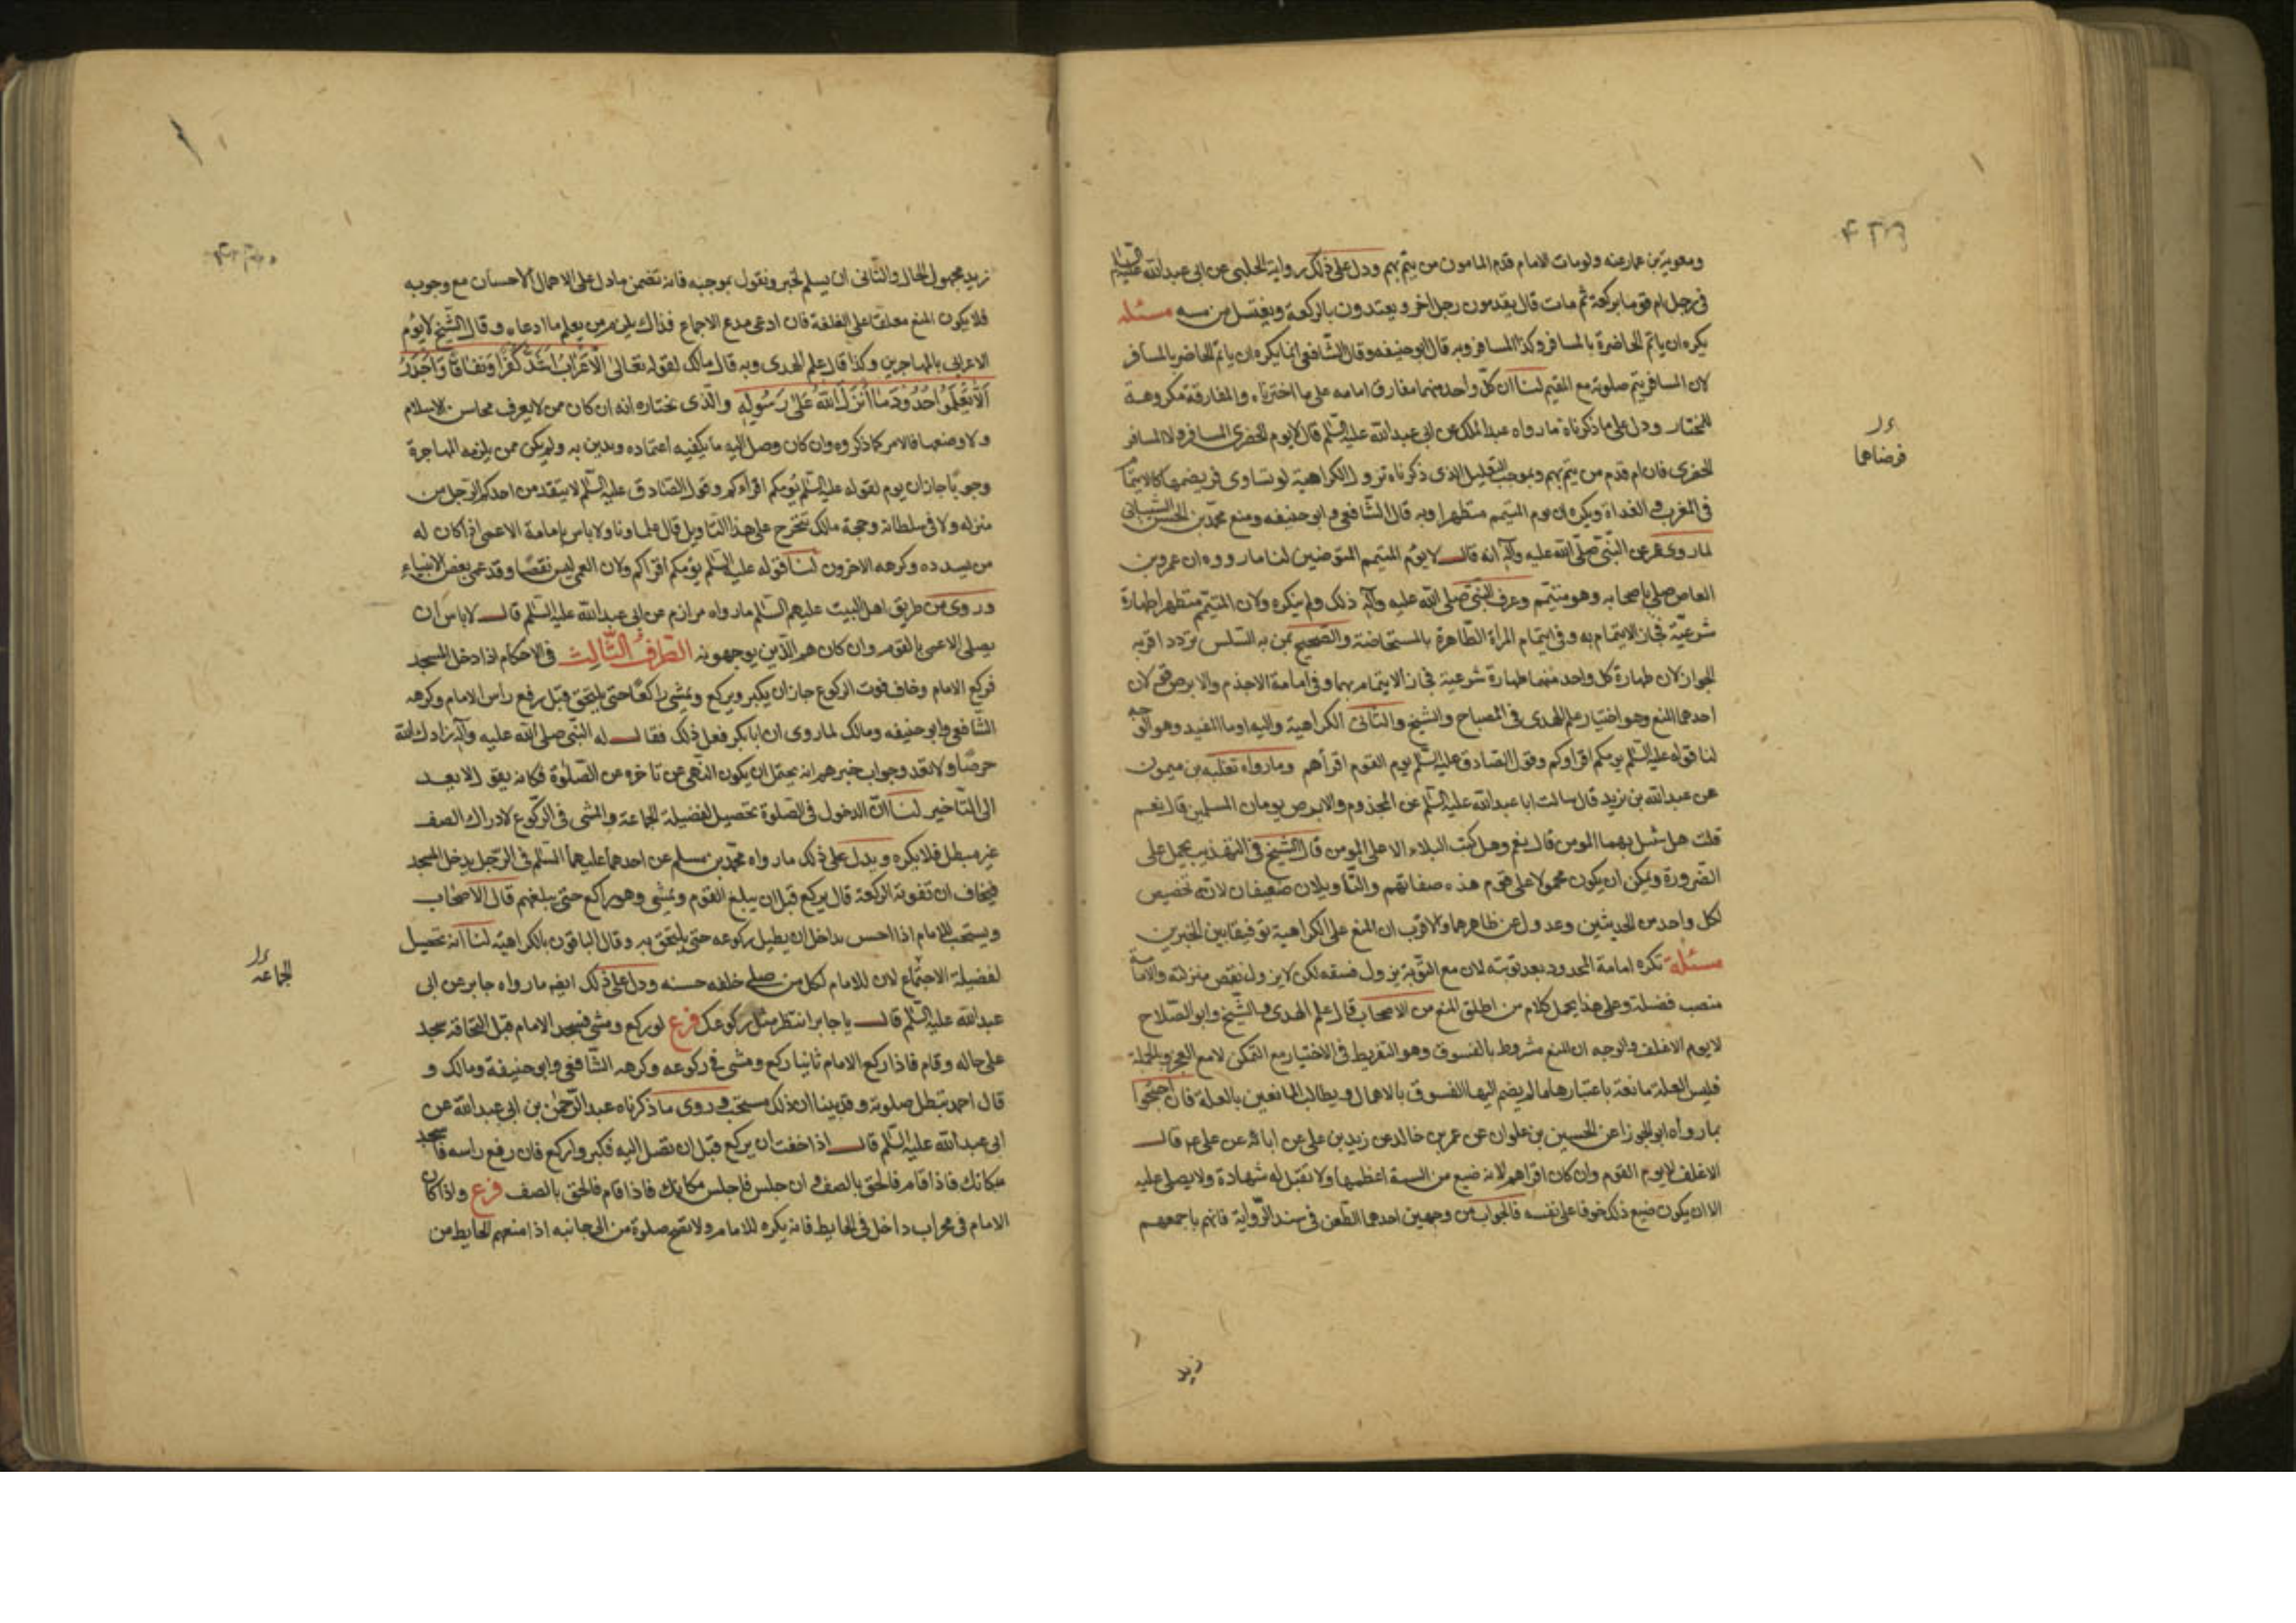 ومعوية بن عمار عنه ولو مات الامام قدم المامون من يتم بهم ودل على ذلك رواية الحلبي عن ابي عبد الله عليه السلم قال
في رجل ام قوما بركعة ثم مات قال يقدمون رجل اخر ويعتدون بالركعة ويغتسل من مسه مسئله
يكره ان ياتم الحاضرة بالمسافر وكذا المسافر وبه قال ابو حنيفه وقال الشافعي انما يكره ان ياتم الحاضر بالمسافر
لان المسافر يتم صلوته مع المقيم لنا ان كل واحد منهما مفارق امامه على ما اخترناه والمفارقة مكروهة
للمختار ودل على ما ذكرناه ما رواه عبد الملك عن ابي عبد الله عليه السلم قال لا يوم الحضرى المسافر ولا المسافر
الحضرى فان ام قدم من يتم بهم وبموجب التعليل الذى ذكرناه تزول الكراهية لو تساوى فريضتهما كالايتمام
في المغرب والغداة ويكره ان يوم المتيمم متطهرا وبه قال الشافعي وابو حنيفه ومنع محمد بن الحسن الشيبانى
لما روى عن النبي صلى الله عليه وآله انه قال لا يؤم المتيمم المتوضين لنا ما رووه ان عمرو بن
العاص صلى باصحابه وهو متيمم وعرف النبي صلى الله عليه وآله ذلك ولم ينكره ولان المتيمم متطهر طهارة
شرعية فجاز الايتمام به وفي ايتمام المراة الطاهرة بالمستحاضة والصحيح بمن به السلس تردد اقربه
الجواز لان طهارة كل واحد منهما طهارة شرعية فجاز الايتمام بهما وفي امامة الاجذم والابرص قولان
احدهما المنع وهو اختيار علم الهدى في المصباح والشيخ والثانى الكراهية واليه اوما المفيد وهو الوجه
لنا قوله عليه السلم يومكم اقراوكم وقول الصادق عليه السلم يوم القوم اقرأهم وما رواه ثعلبه بن ميمون
عن عبد الله بن يزيد قال سالت ابا عبد الله عليه السلم عن المجذوم والابرص يومان المسلمين قال نعم
قلت هل يبتلى بهما المومن قال نعم وهل كتب البلاء الا على المومن قال الشيخ في التهذيب يحمل على
الضرورة ويمكن ان يكون محمولا على قوم هذه صفاتهم والتاويلان ضعيفان لانه تخصيص
لكل واحد من الحديثين وعدول عن ظاهرهما والاقرب ان المنع على الكراهية توفيقا بين الخبرين
مسئلة تكره امامة المحدود بعد توبته لان مع التوبة يزول فسقه لكن لا يزول نقص منزلته والامامة
منصب فضيلة وعلى هذا يحمل كلام من اطلق المنع من الاصحاب قال علم الهدى والشيخ وابو الصلاح
لا يوم الاغلف والوجه ان المنع مشروط بالفسوق وهو التفريط في الاختيار مع التمكن لا مع العجز وبالجملة
فليس العلة مانعة باعتبارها ما لم يضم اليها الفسوق بالاهمال ويطالب المانعين بالعلة فان احتجوا
بما رواه ابو الجوزا عن الحسين بن علوان عن عمر بن خالد عن زيد بن على عن ابائه عن على ع قال
الاغلف لا يوم القوم وان كان اقراهم لانه ضيع من السنة اعظمها ولا تقبل له شهادة ولا يصلى عليه
الا ان يكون ضيع ذلك خوفا على نفسه فالجواب من وجهين احدهما الطعن في سند الرواية فانهم باجمعهم
زيد
فرضاهما
زيد مجهول الحال والثانى ان يسلم الخبر ونقول بموجبه فانه تضمن ما دل على الاهمال الاحسان مع وجوبه
فلا يكون المنع معلقا على الغلفة فان ادعى مدع الاجماع فذاك يلزم من يعلم ما ادعاه وقال الشيخ لا يؤم
الاعرابى بالمهاجرين وكذا قال علم الهدى وبه قال مالك لقوله تعالى الاعراب اشد كفرا ونفاقا واجدر
ألا يعلموا حدود ما انزل الله على رسوله والذى نختاره انه ان كان من لا يعرف محاسن الاسلام
ولا وصفها فالامر كما ذكروه وان كان وصل اليه ما يكفيه اعتماده ويدين به ولم يكن ممن يلزمه المهاجرة
وجوبا جاز ان يوم لقوله عليه السلم يؤمكم اقراءكم وقول الصادق عليه السلم لا يتقدمن احدكم الرجل من
منزله ولا في سلطانه وحجة مالك تتخرج على هذا التاويل قال علماونا ولا باس بامامة الاعمى اذا كان له
من يسدده وكرهه الاخرون لنا قوله عليه السلم يؤمكم اقراكم ولان العمى ليس نقصا وقد عمى بعض الانبياء
وروى من طريق اهل البيت عليهم السلم ما رواه مرازم عن ابي عبد الله عليه السلم قال لا باس ان
يصلى الاعمى بالقوم وان كان هم الذين يوجهونه الطرف الثالث في الاحكام اذا دخل المسجد
فركع الامام وخاف فوت الركوع جاز ان يكبر ويركع ويمشى راكعا حتى يلتحق قبل رفع رأس الامام وكرهه
الشافعي وابو حنيفه ومالك لما روى ان ابا بكر فعل ذلك فقال له النبي صلى الله عليه وآله زادك الله
حرصا ولا تعد وجواب خبرهم انه يحتمل ان يكون النهى عن تاخره عن الصلوة فكانه يقول لا تعد
الى التاخير لنا ان الدخول في الصلوة تحصيل لفضيلة الجماعة والمشى في الركوع لادراك الصف
غير مبطل فلا يكره ويدل على ذلك ما رواه محمد بن مسلم عن احدهما عليهما السلم في الرجل يدخل المسجد
فيخاف ان تفوته الركعة قال يركع قبل ان يبلغ القوم ويمشى وهو راكع حتى يبلغهم قال الاصحاب
ويستحب للامام اذا احس بداخل ان يطيل ركوعه حتى يلتحق به وقال الباقون بالكراهية لنا انه تحصيل
لفضيلة الاجتماع لان للامام لكل من صلى خلفه حسنه ودل على ذلك ايضا ما رواه جابر عن ابي
عبد الله عليه السلم قال يا جابر انتظر مثل ركوعك فرع لو ركع ومشى فسجد الامام قبل التحاقه سجد
على حاله وقام فاذا ركع الامام ثانيا ركع ومشى في ركوعه وكرهه الشافعي وابو حنيفة ومالك و
قال احمد تبطل صلوته وقد بينا ان ذلك مستحب وروى ما ذكرناه عبد الرحمن بن ابي عبد الله عن
ابي عبد الله عليه السلم قال اذا خفت ان يركع قبل ان تصل اليه فكبر واركع فان رفع راسه فاسجد
مكانك فاذا قام فالحق بالصف وان جلس فاجلس مكانك فاذا قام فالحق بالصف فرع واذا كان
الامام في محراب داخل في الحايط فانه يكره للامام ولا تصح صلوة من الى جانبه اذا منعهم الحايط من
الجماعه